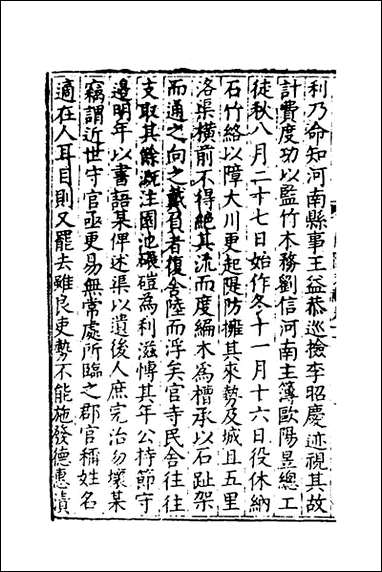 利乃命知河南縣事王益恭巡檢李昭慶迹視其故
計費度功以監竹木務劉信河南主簿歐陽昱總工
徒秋八月二十七日始作冬十一月十六日役休納
石竹絡以障大川更起隄防擁其來勢及城且五里
洛渠橫前不得絕其流而度編木為槽承以石趾架
而通之向之戴負者復舍陸而浮矣官寺民舍往往
支取其餘溉注園池碾磑為利滋博其年公持節守
邊明年以書語某俾述渠以遺後人庶完治勿壞某
竊謂近世守官亟更易無常處所臨之郡官稱姓名
適在人耳目則又罷去雖良吏勢不能施發德惠漬